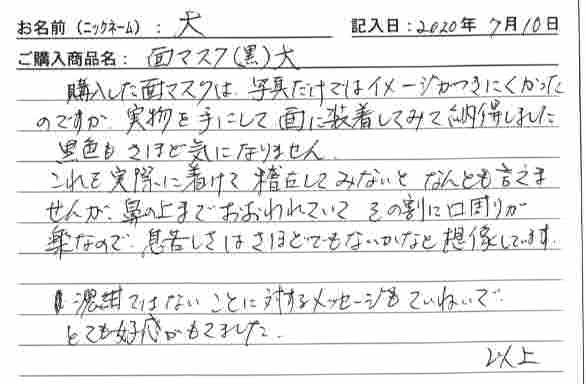 お名前（ニックネーム）： 犬
記入日：2020年 7月10日
ご購入商品名： 面マスク（黒）大
購入した面マスクは、写真だけではイメージがつきにくかった
のですが、実物を手にして面に装着してみて納得しました
黒色もさほど気になりません。
これを実際に着けて稽古してみないとなんとも言えま
せんが、鼻の上までおおわれていてその割に口周りが
楽なので、息苦しさはさほどでもないかなと想像しています。
濃紺ではないことに対するメッセージもていねいで
とても好感がもてました。
以上